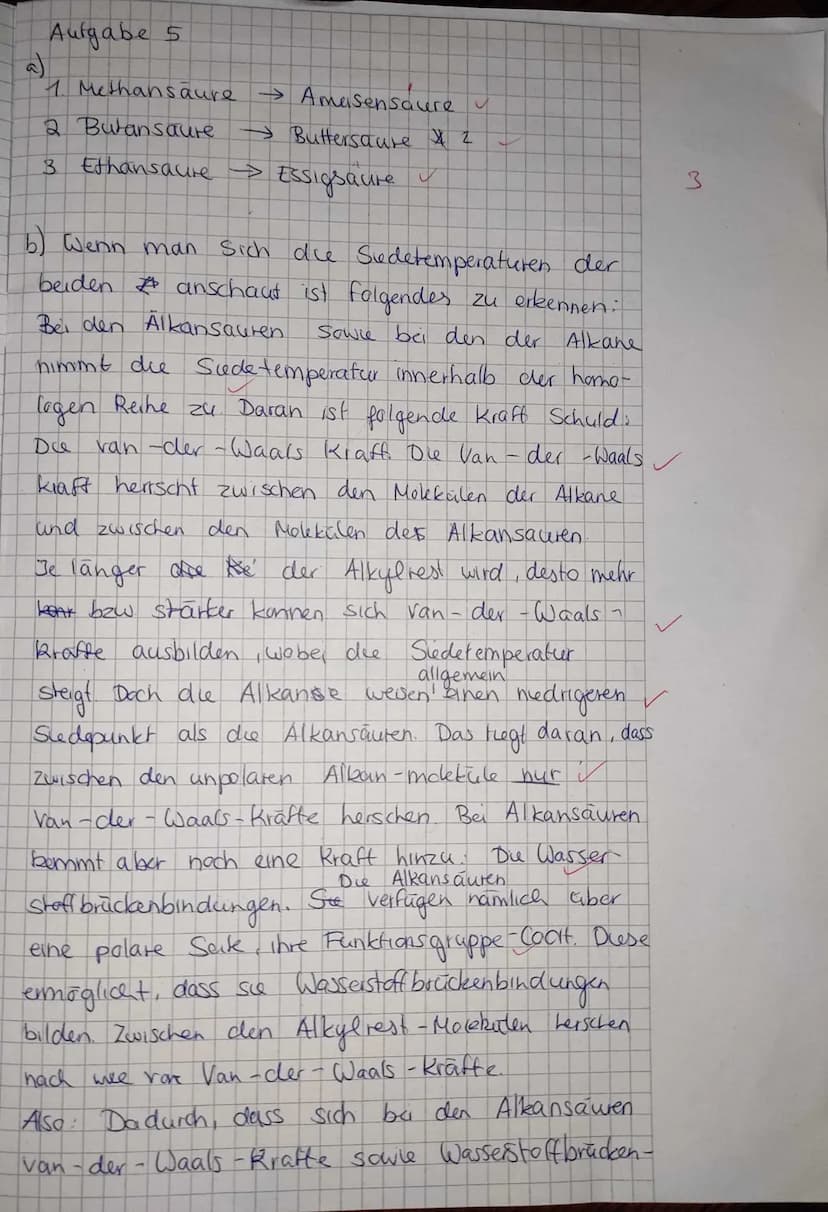 Aufgabe 5
a)
1. Methansäure → Ameisensäure ✓
2 Butansäure → Buttersäure 2 ✓
3 Ethansäure → Essigsäure ✓
3
b) Wenn man sich die Siedetemperaturen der
beiden anschaut ist folgendes zu erkennen:
Bei den Alkansäuren sowie bei den der Alkane
nimmt die Siedetemperatur innerhalb der homo-
logen Reihe zu Daran ist folgende Kraft Schuld:
Die van-der-Waals Kraft. Die Van-der-Waals ✓
kraft herrscht zwischen den Molekülen der Alkane
und zwischen den Molekülen der Alkansäuren.
Je länger der Alkylrest wird, desto mehr
bzw stärker können sich van-der-Waals- ✓
Kräfte ausbilden, wobei die Siedetemperatur
steigt. Doch die Alkane weisen allgemein einen niedrigeren ✓
Siedepunkt als die Alkansäuren. Das liegt daran, dass
zwischen den unpolaren Alkan-moleküle nur ✓
Van-der-Waals-Kräfte herschen. Bei Alkansäuren
kommt aber noch eine Kraft hinzu: Die Wasser-
stoffbrückenbindungen. Die Alkansäuren verfügen nämlich über
eine polare Seite, ihre Funktionsgruppe -COOH. Diese
ermöglicht, dass sie Wasserstoffbrückenbindungen
bilden. Zwischen den Alkylrest-Molekülen herschen
nach wie vor Van-der-Waals-Kräfte.
Also: Dadurch, dass sich bei den Alkansäuren
van-der-Waals-Kräfte sowie Wasserstoffbrücken-